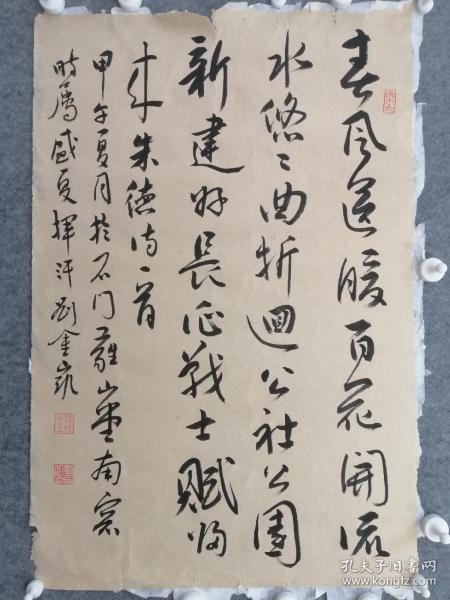 春风送暖百花开流
水悠々曲折迴公社公園
新建好長征战士赋归
来朱德诗一首
甲午夏月於石门离山堂南窗
時属盛夏挥汗刘金凯
孔夫子旧书网
www.kongfz.com